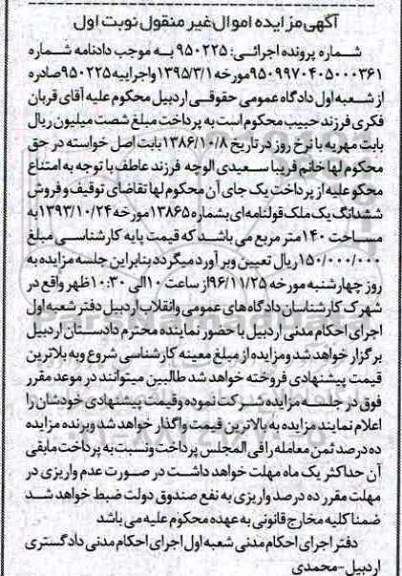 آگهی مزایده اموال غیر منقول نوبت اول
شماره پرونده اجرائی: ۹۵۰۲۲۵ به موجب دادنامه شماره
۹۵۰۹۹۷۰۴۰۵۰۰۰۳۶۱ مورخه ۱۳۹۵/۳/۱ واجراییه ۹۵۰۲۲۵ صادره
از شعبه اول دادگاه عمومی حقوقی اردبیل محکوم علیه آقای قربان
فکری فرزند حبیب محکوم است به پرداخت مبلغ شصت میلیون ریال
بابت مهریه با نرخ روز در تاریخ ۱۳۸۶/۱۰/۸ بابت اصل خواسته در حق
محکوم لها خانم فریبا سعیدی الوجه فرزند عاطف با توجه به امتناع
محکو علیه از پرداخت یک جای آن محکوم لها تقاضای توقیف و فروش
ششدانگ یک ملک قولنامه ای بشماره ۱۳۸۶۵ مورخه ۱۳۹۳/۱۰/۲۴ به
مساحت ۱۴۰ متر مربع می باشد که قیمت پایه کارشناسی مبلغ
۱۵۰/۰۰۰/۰۰۰ ریال تعیین وبر آورد میگردد بنابراین جلسه مزایده به
روز چهارشنبه مورخه ۹۶/۱۱/۲۵ از ساعت ۱۰ الی ۱۰:۳۰ ظهر واقع در
شهرک کارشناسان دادگاه های عمومی وانقلاب اردبیل دفتر شعبه اول
اجرای احکام مدنی اردبیل با حضور نماینده محترم دادستان اردبیل
برگزار خواهد شد ومزایده از مبلغ معینه کارشناسی شروع وبه بلاترین
قیمت پیشنهادی فروخته خواهد شد طالبین میتوانند در موعد مقرر
فوق در جلسه مزایده شرکت نموده وقیمت پیشنهادی خودشان را
اعلام نمایند مزایده به بالاترین قیمت واگذار خواهد شد وبرنده مزایده
ده درصد ثمن معامله رافی المجلس پرداخت ونسبت به پرداخت مابقی
آن حداکثر یک ماه مهلت خواهد داشت در صورت عدم واریزی در
مهلت مقرر ده درصد واریزی به نفع صندوق دولت ضبط خواهد شد
ضمنا کلیه مخارج قانونی به عهده محکوم علیه می باشد
دفتر اجرای احکام مدنی شعبه اول اجرای احکام مدنی دادگستری
اردبیل-محمدی